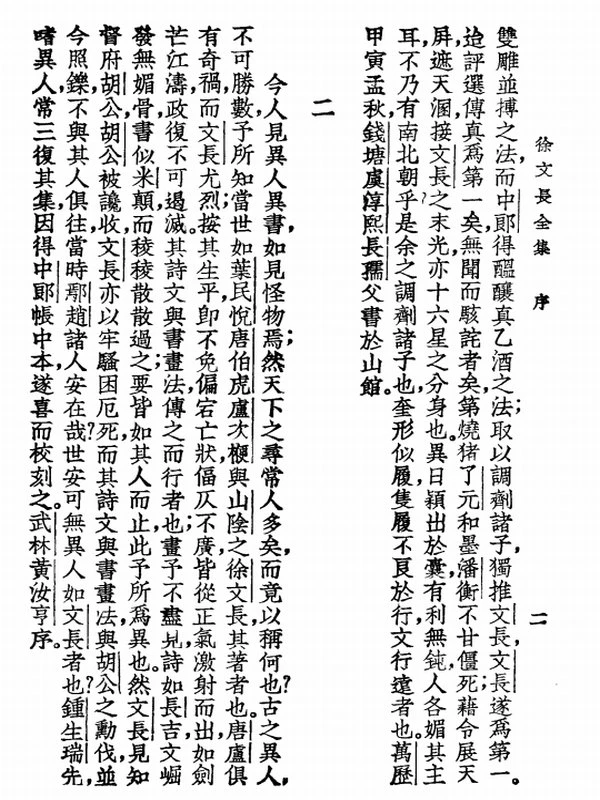 徐文長全集　序　二
雙雕並搏之法，而中郎得醞釀真乙酒之法；取以調劑諸子，獨推文長，文長遂爲第一。
迨評選傳真爲第一矣，無聞而駭詫者矣，第燒猪了元和墨潘衡不甘僵死；藉令展天
屏，遮天溷，接文長之末光，亦十六星之分身也。異日穎出於囊，有利無鈍，人各媚其主
耳，不乃有南北朝乎？是余之調劑諸子也，奎形似履，隻履不良於行，文行遠者也。萬歷
甲寅孟秋，錢塘虞淳熙長孺父書於山館。
二
今人見異人異書，如見怪物焉；然天下之尋常人多矣，而竟以稱何也？古之異人，
不可勝數，予所知當世如葉民悅唐伯虎盧次楩，與山陰之徐文長其著者也。唐盧俱
有奇禍，而文長尤烈；按其生平，卽不免偏宕亡狀，偪仄不廣，皆從正氣激射而出，如劍
芒江濤，政復不可遏滅。其詩文與書畫法，傳之而行者也；畫予不盡見，詩如長吉，文崛
發無媚骨，書似米顛，而稜稜散散過之，要皆如其人而止，此予所爲異也。然文長見知
督府胡公，胡公被讒收，文長亦以牢騷困厄死；而其詩文與書畫法，與胡公之勳伐，並
今照鑠，不與其人俱往，當時鄢趙諸人安在哉？世安可無異人如文長者也？鍾生瑞先，
嗜異人，常三復其集，因得中郎帳中本，遂喜而校刻之。武林黃汝亨序。